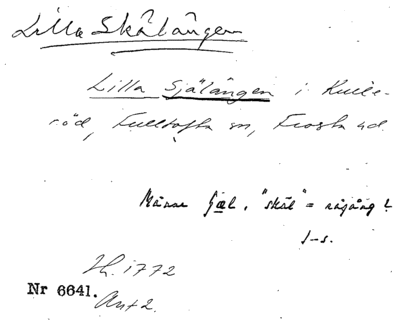 Lilla Skälängen
Lilla Själängen i Kulle-
röd, Fulltofta sn, Frosta hd.
Månne fjäl, "skäl" = rågång?
J-s.
Lh. 1772
Nr 6641.
Ant 2.